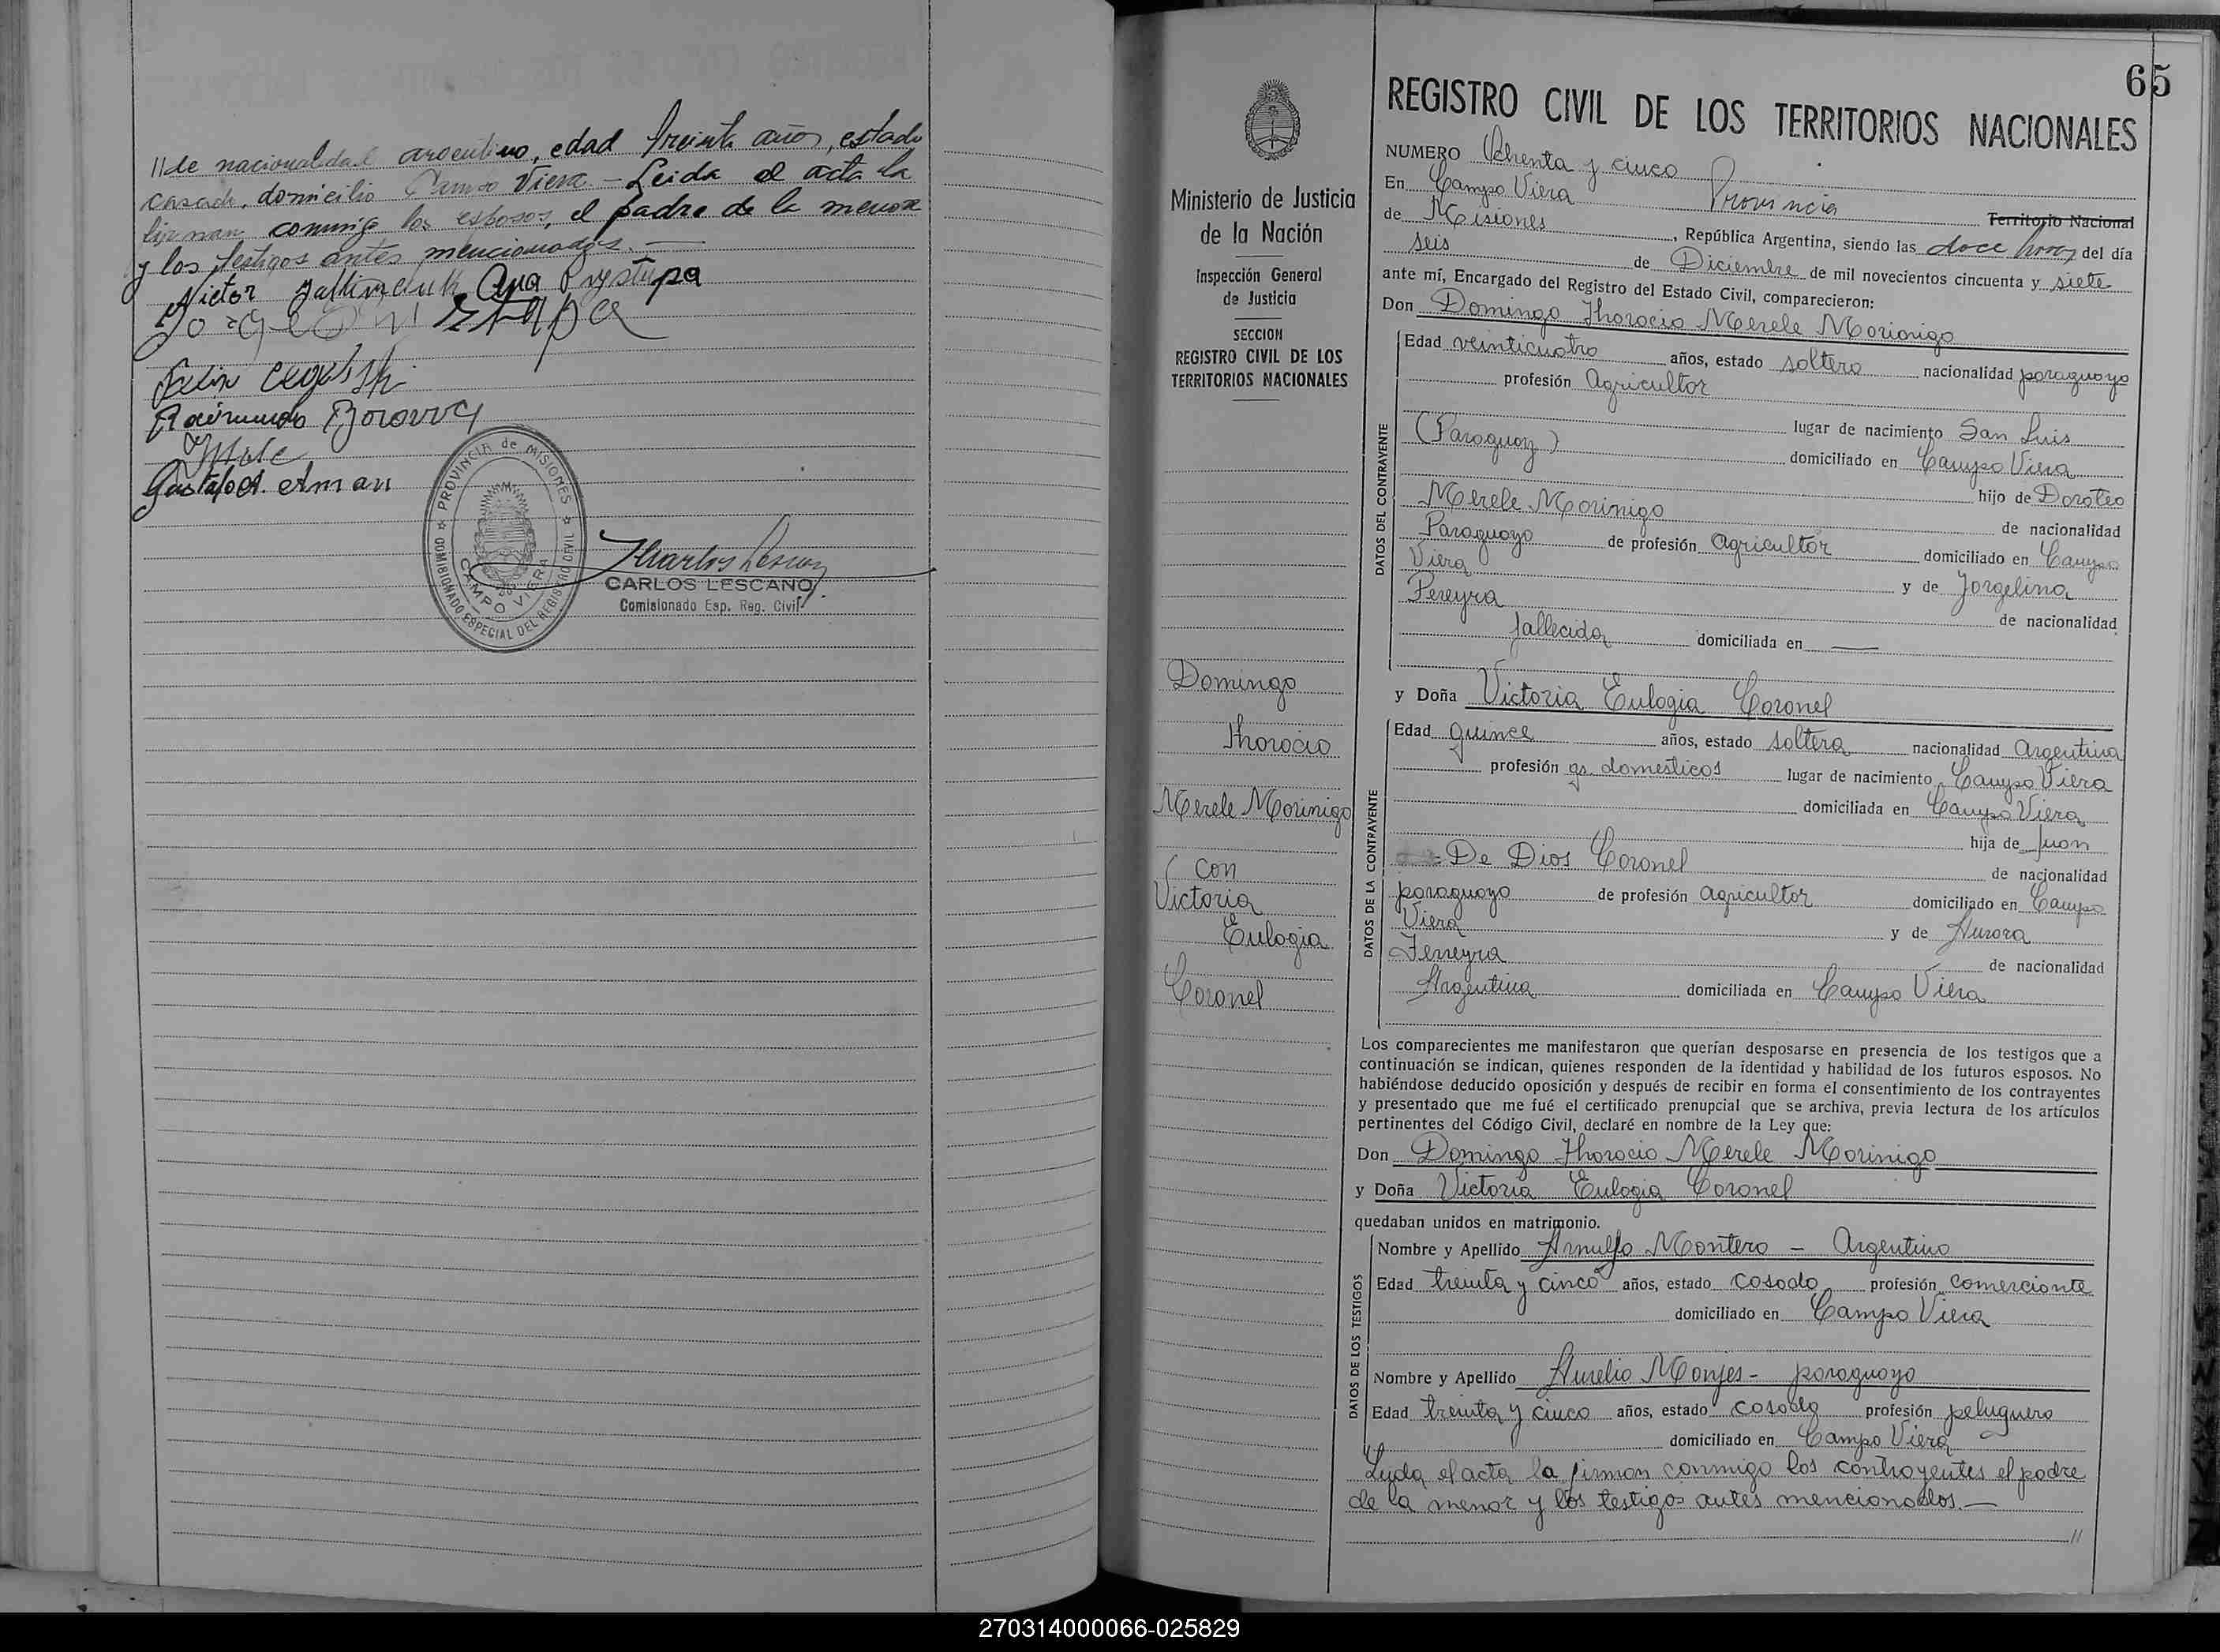 //de nacionalidad argentino, edad treinta años, estado
casado, domicilio Campo Viera.- Leida el acta la
firman conmigo los esposos, el padre de la menor
y los testigos antes mencionados.—
Victor Ana Prystupa
Raimundo
Gustavo A. Aman
PROVINCIA de MISIONES
COMISIONADO ESPECIAL DEL REGISTRO CIVIL
CAMPO VIERA
Carlos Lescano
CARLOS LESCANO
Comisionado Esp. Reg. Civil
65
Ministerio de Justicia
de la Nación
Inspección General
de Justicia
SECCION
REGISTRO CIVIL DE LOS
TERRITORIOS NACIONALES
Domingo
Horocio
Merele Morinigo
con
Victoria
Eulogia
Coronel
REGISTRO CIVIL DE LOS TERRITORIOS NACIONALES
NUMERO Ochenta y cinco
En Campo Viera Provincia Territorio Nacional
de Misiones, República Argentina, siendo las doce horas del día
seis de Diciembre de mil novecientos cincuenta y siete
ante mí, Encargado del Registro del Estado Civil, comparecieron:
Don Domingo Horocio Merele Morinigo
DATOS DEL CONTRAYENTE
Edad veinticuatro años, estado soltero nacionalidad paraguayo
profesión Agricultor
lugar de nacimiento San Luis
(Paraguay) domiciliado en Campo Viera
hijo de Doroteo
Merele Morinigo de nacionalidad
Paraguayo de profesión Agricultor domiciliado en Campo
Viera y de Jorgelina
Pereyra de nacionalidad
fallecida domiciliada en —
y Doña Victoria Eulogia Coronel
DATOS DE LA CONTRAYENTE
Edad quince años, estado soltera nacionalidad Argentina
profesión qs. domesticos lugar de nacimiento Campo Viera
domiciliada en Campo Viera
hija de Juan
De Dios Coronel de nacionalidad
paraguayo de profesión Agricultor domiciliado en Campo
Viera y de Aurora
Ferreyra de nacionalidad
Argentina domiciliada en Campo Viera
Los comparecientes me manifestaron que querían desposarse en presencia de los testigos que a
continuación se indican, quienes responden de la identidad y habilidad de los futuros esposos. No
habiéndose deducido oposición y después de recibir en forma el consentimiento de los contrayentes
y presentado que me fué el certificado prenupcial que se archiva, previa lectura de los artículos
pertinentes del Código Civil, declaré en nombre de la Ley que:
Don Domingo Horocio Merele Morinigo
y Doña Victoria Eulogia Coronel
quedaban unidos en matrimonio.
DATOS DE LOS TESTIGOS
Nombre y Apellido Arnulfo Montero - Argentino
Edad treinta y cinco años, estado casado profesión comerciante
domiciliado en Campo Viera
Nombre y Apellido Aurelio Monjes - paraguayo
Edad treinta y cinco años, estado casado profesión peluquero
domiciliado en Campo Viera
Leida el acta la firman conmigo los contrayentes el padre
de la menor y los testigos antes mencionados.—
//
270314000066-025829